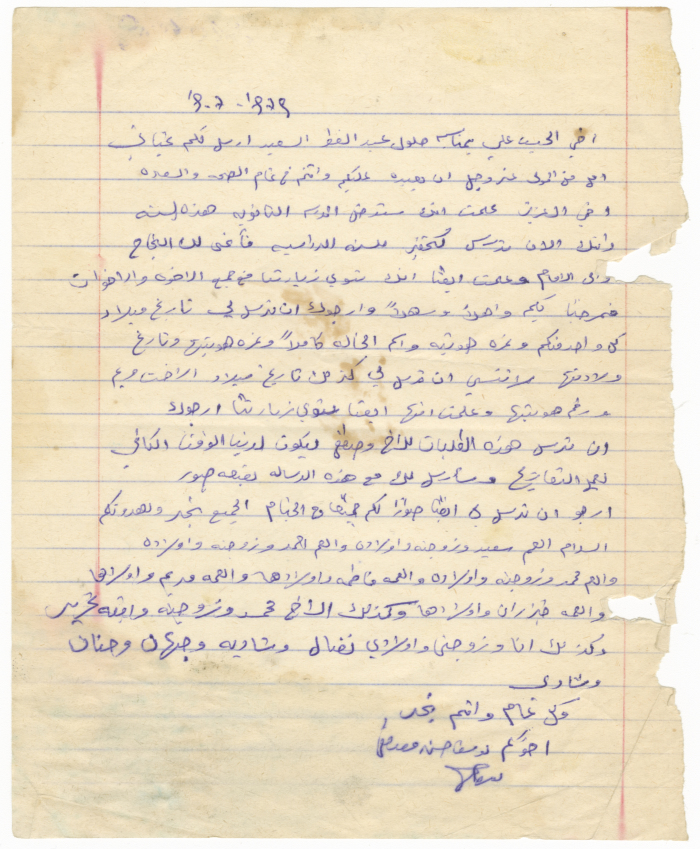 1979-7-19
اخي الحبيب علي بمناسبة حلول عيد الفطر السعيد ارسل لكم تحياتي
امل من المولى عز وجل ان يعيده عليكم وانتم في تمام الصحه والسعاده
اخي العزيز علمت انك ستدخل المدرسه الثانويه هذه السنه
وانك الان تدرس لتحضير للسنه الدراسيه فأتمنى لك النجاح
والى الامام وعلمت ايضا انك تنوي زيارتنا مع جميع الاخوه والاخوات
فمرحبا بكم واهلاً وسهلاً وارجوك ان ترسل لي تاريخ ميلاد
كل واحد منكم ونمره هويته واسم الخاله كاملاً ونمره هويتها وتاريخ
ولادتها ولا تنسى ان ترسل لي كذلك تاريخ ميلاد الاخت مريم
ورقم هويتها وعلمت انها ايضا تنوي زيارتنا ارجوك
ان ترسل هذه الطلبات للأخ مصطفى ليكون لدينا الوقت الكافي
لعمل التصاريح وسأرسل لك مع هذه الرساله بعض صور
ارجو ان ترسل لنا ايضا صوراً لكم جميعا وفي الختام الجميع بخير ويهدونكم
السلام العم سعيد وزوجته واولاده والعم احمد وزوجته واولاده
والعم محمد وزوجته واولاده والعمه فاطمه واولادها والعمه مريم واولادها
والعمه خيزران واولادها وكذلك الأخ محمد وزوجته وابنته تحرير
وكذلك انا وزوجتي واولادي نضال وشاديه وجيهان وحنان
وشادي
وكل عام وانتم بخير
اخوكم يوسف حسن